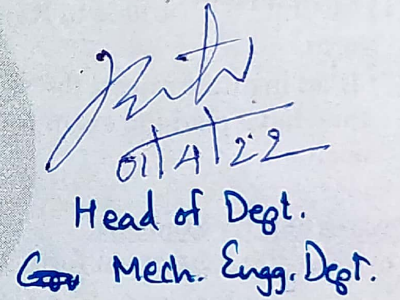 01/4/22
Head of Dept.
Mech. Engg. Dept.